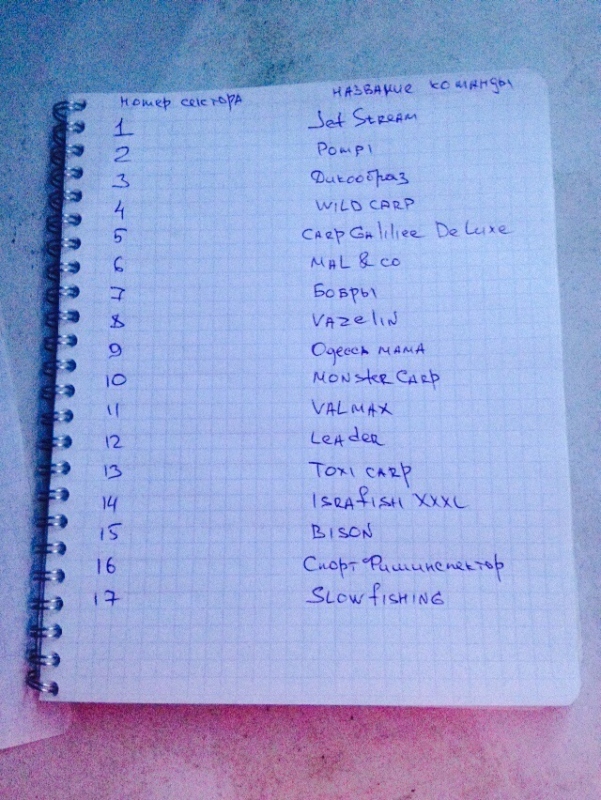 Номер сектора название команды
1 Jet Stream
2 Pompi
3 Дикообраз
4 WILD CARP
5 CARP Galiliee De Luxe
6 MAL & CO
7 Бобры
8 VAZeliN
9 Одесса мама
10 MONSter CARP
11 VALMAX
12 LeAder
13 TOXI CARP
14 ISRAfISH XXXL
15 BISON
16 Спорт Фишинспектор
17 SLOW fISHING